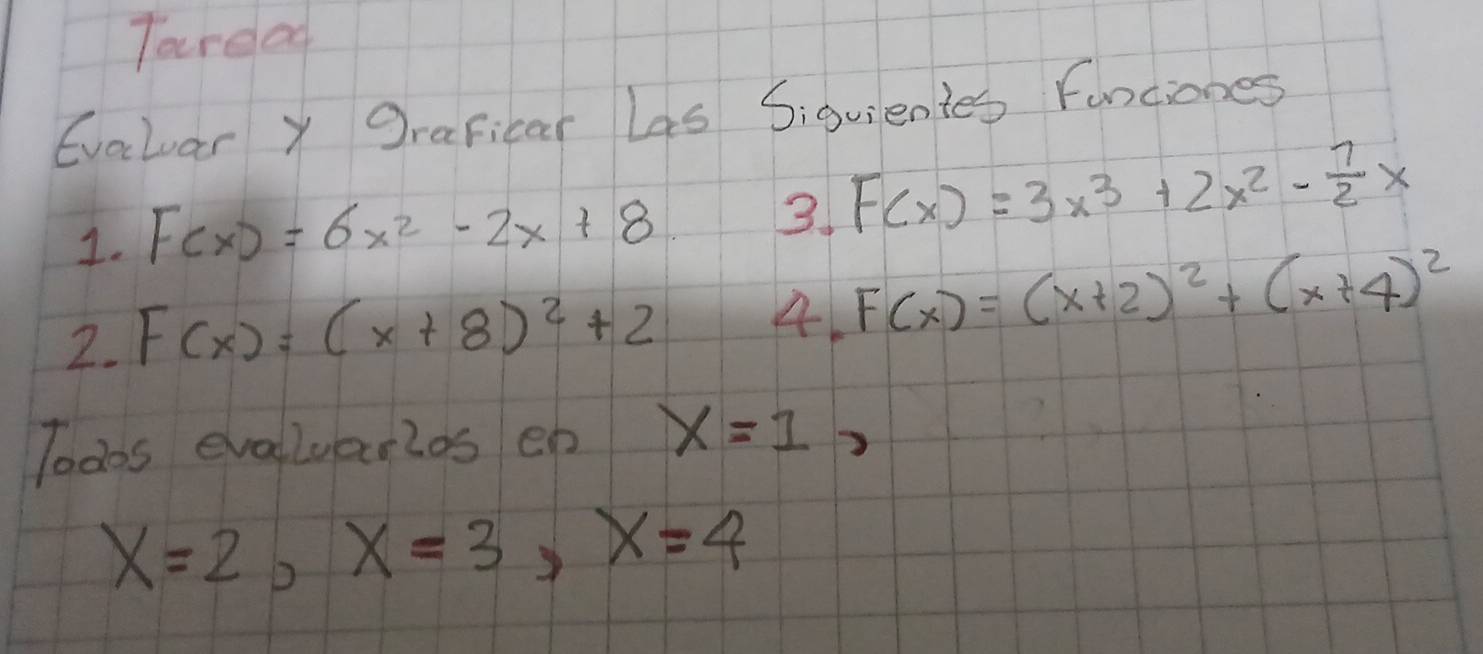 Tarea
Evaluar y graficar Las Siguientes Funciones
1. F(x) = 6x² - 2x + 8. 3. F(x) = 3x³ + 2x² - 7/2 x
2. F(x) = (x + 8)² + 2 4. F(x) = (x+2)² + (x+4)²
Todos evaluarlos en X = 1,
X = 2, X = 3, X = 4